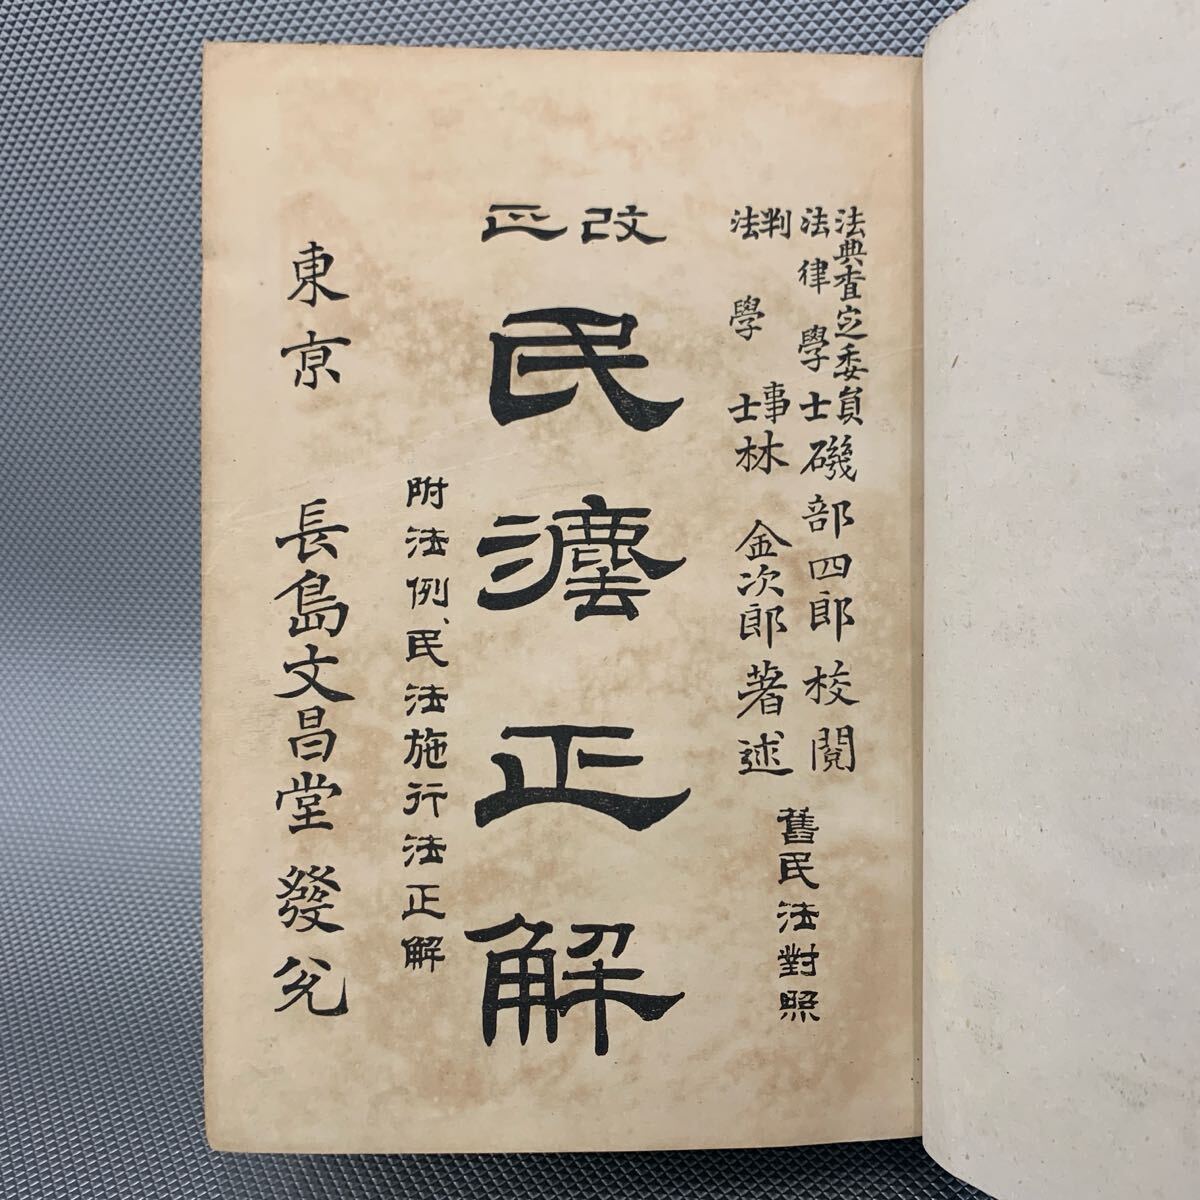 法典査定委員
法律學士磯部四郎校閲
判事
法學士林金次郎著述
舊民法對照
改正
民灋正解
附法例、民法施行法正解
東京 長島文昌堂發兌